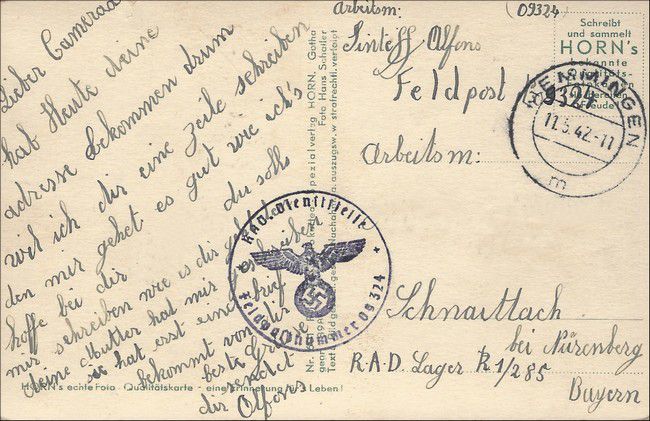 Lieber Camerad
hab Heute deine
adresse bekommen drum
wil ich dir eine Zeile schreiben
den mir gehet es gut wie ich's
hoffe bei dir du solls
mir schreiben wie es dir
deine Mutter hat mir
sie hat erst eine brief
bekommt von dir
beste
sendet
dir Alfons
Arbeitsm: (09324)
Sinteff Alfons
Feldpost
09324
Arbeitsm:
Schnaittach
bei Nürenberg
R.A.D. Lager K 1/285
Bayern
Schreibt
und sammelt
HORN's
bekannte
MEININGEN
11.5.42.-11
m
RAD Dienststelle
Feldpostnummer 09324
Spezialverlag HORN, Gotha
Foto Hans Schaller
HORN's echte Foto - Qualitätskarte - eine Erinnerung für's Leben!